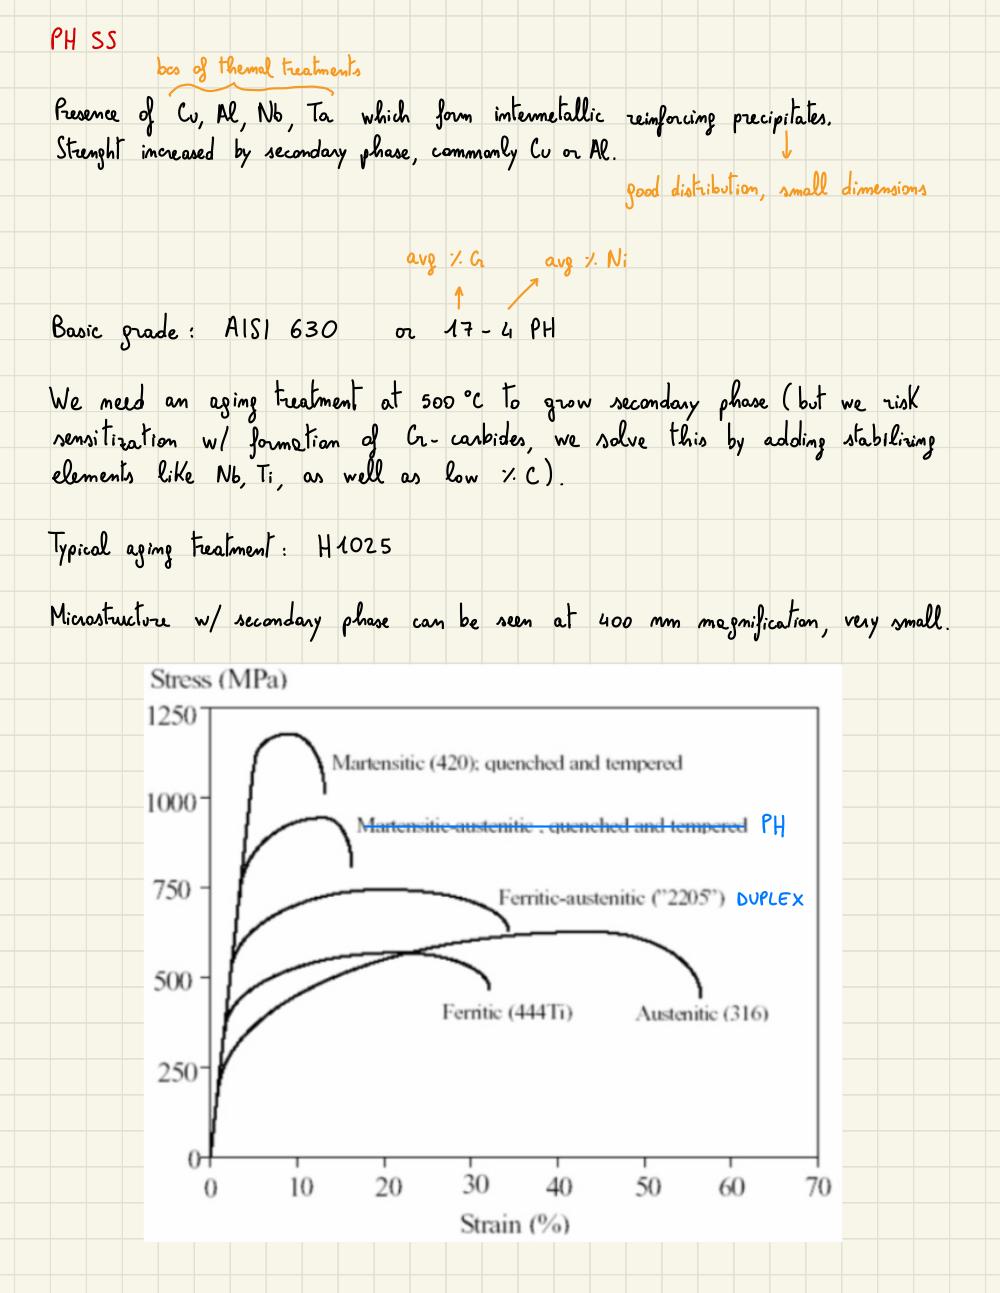 PH SS
bcs of themal treatments
Presence of Cu, Al, Nb, Ta which form intermetallic reinforcing precipitates.
Strenght increased by secondary phase, commonly Cu or Al.
good distribution, small dimensions
avg % Cr avg % Ni
Basic grade: AISI 630 or 17-4 PH
We need an aging treatment at 500 °C to grow secondary phase (but we risk
sensitization w/ formation of Cr-carbides, we solve this by adding stabilizing
elements like Nb, Ti, as well as low % C).
Typical aging treatment: H1025
Microstructure w/ secondary phase can be seen at 400 mm magnification, very small.
Stress (MPa)
1250
Martensitic (420); quenched and tempered
1000
Martensitic-austenitic , quenched and tempered PH
750
Ferritic-austenitic ("2205") DUPLEX
500
Ferritic (444Ti) Austenitic (316)
250
0
0 10 20 30 40 50 60 70
Strain (%)